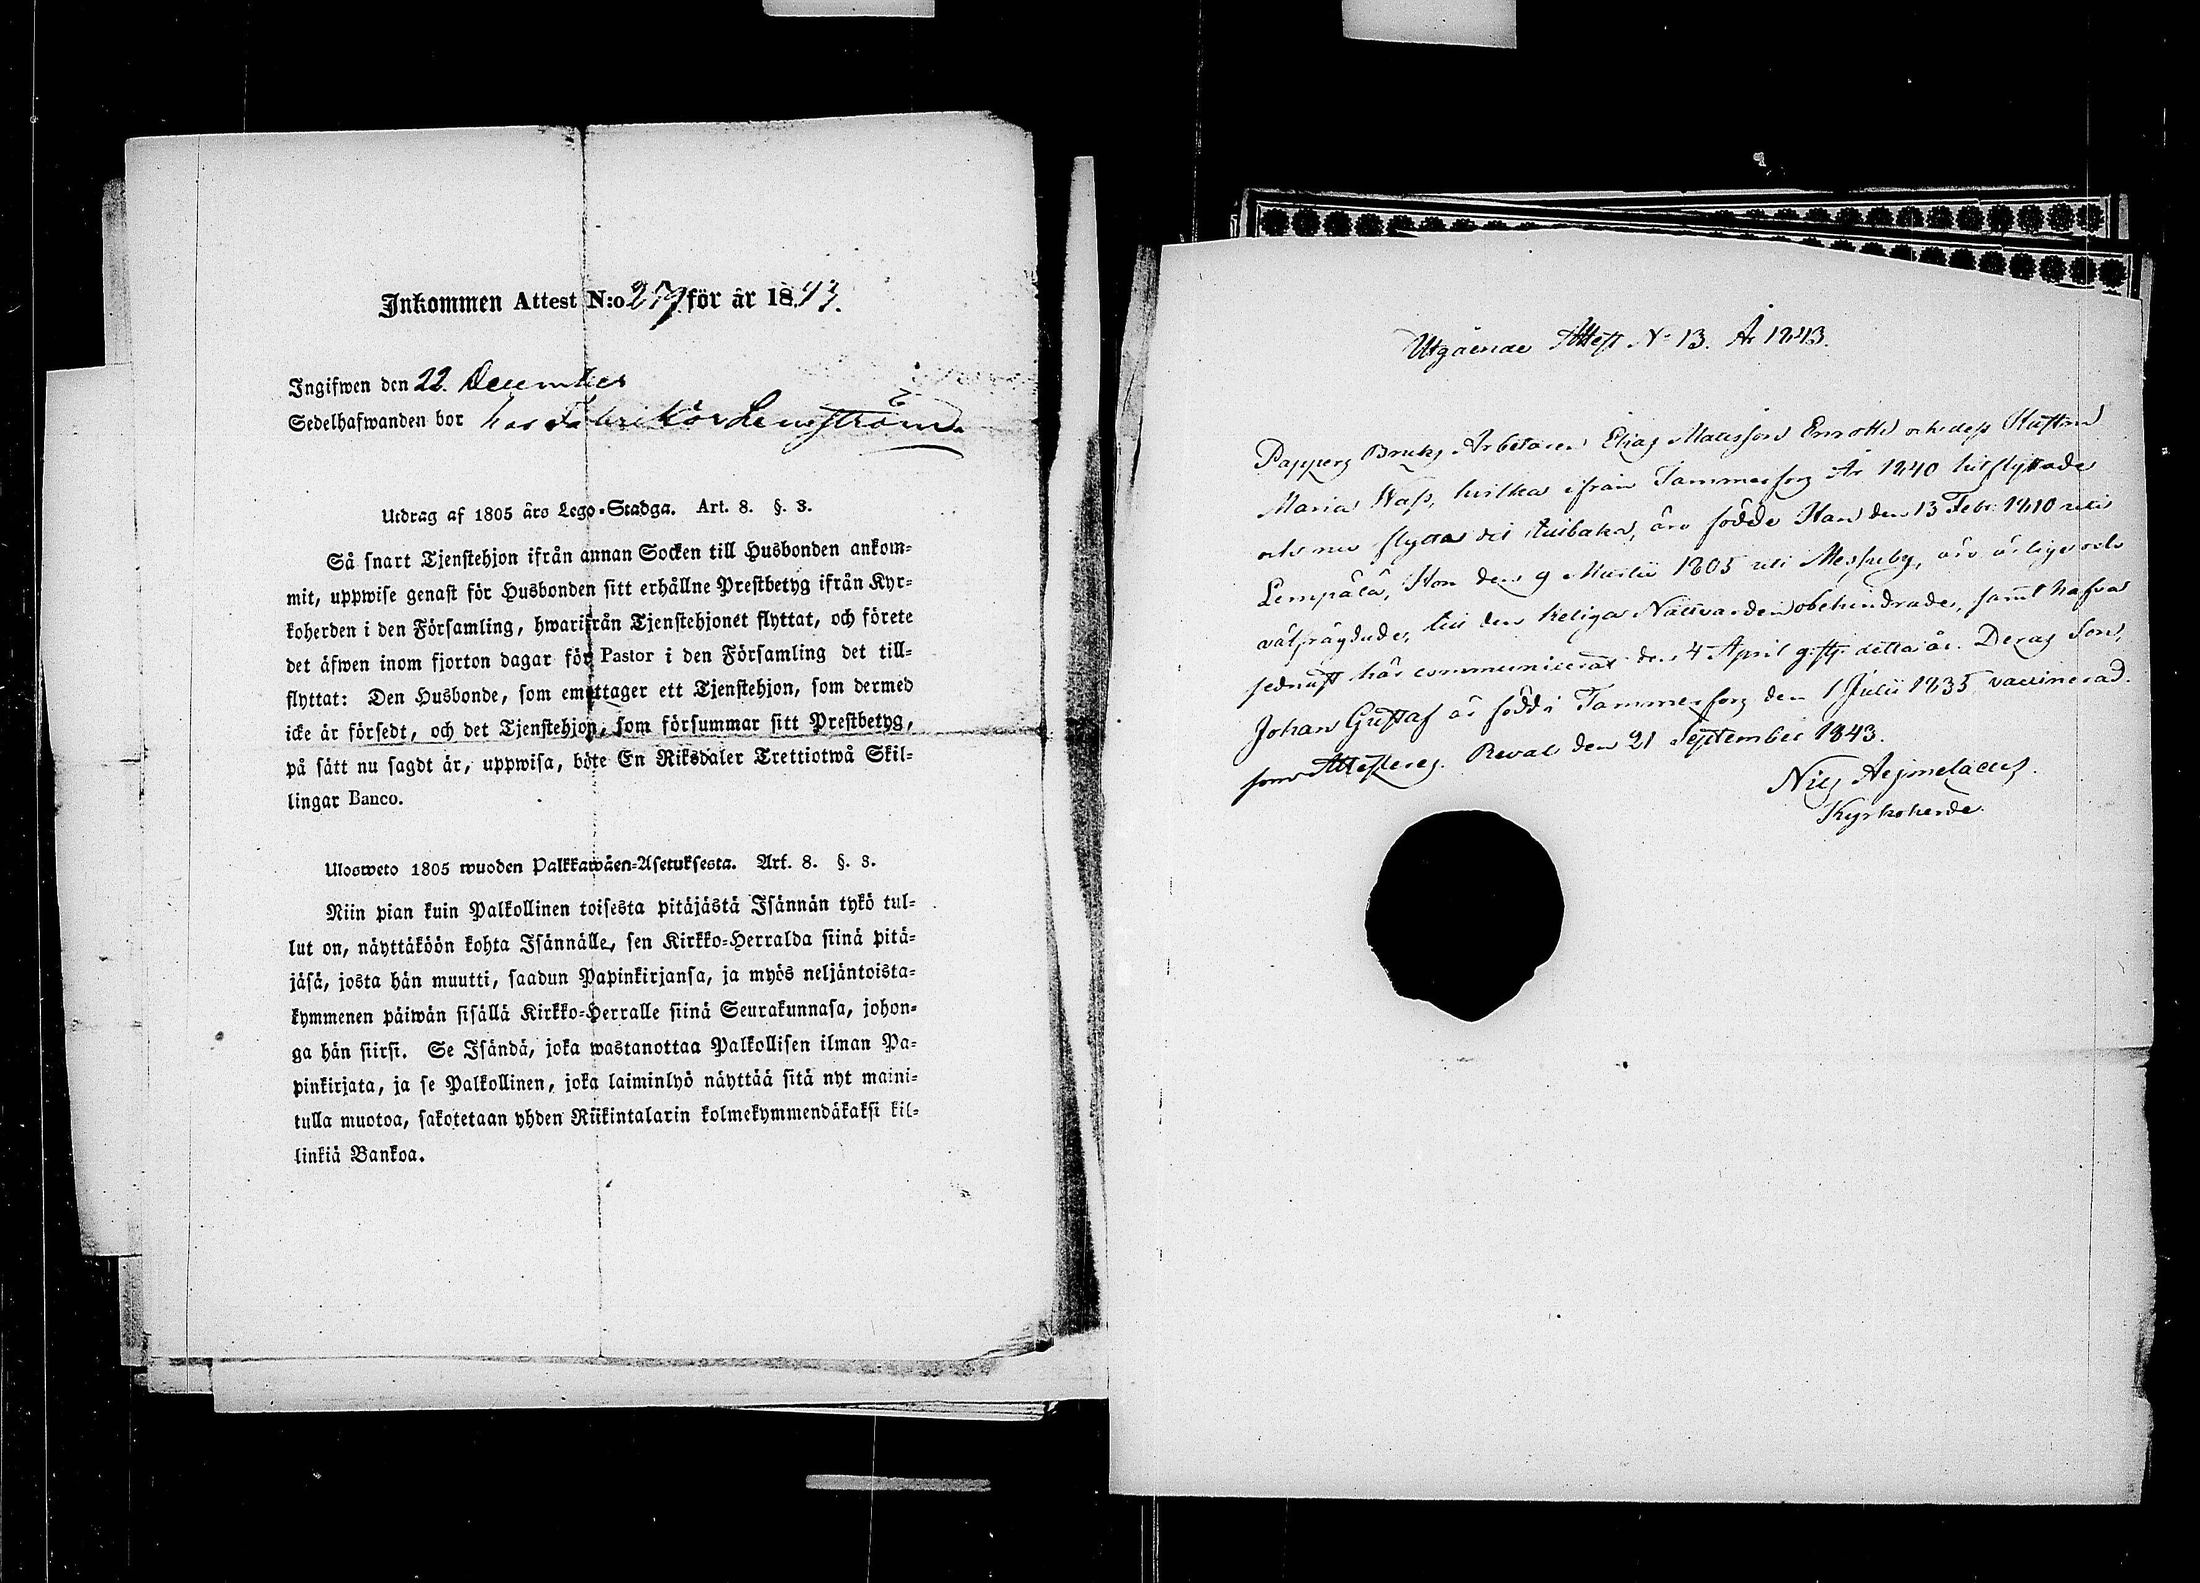 Inkommen Attest N:o 279. för år 1843.
Ingifwen den 22. December
Sedelhafwanden bor hos Fabrikör Lemström.
Utdrag af 1805 års Lego-Stadga. Art. 8. §. 3.
Så snart Tjenstehjon ifrån annan Socken till Husbonden ankom-
mit, uppwise genast för Husbonden sitt erhållne Prestbetyg ifrån Kyr-
koherden i den Församling, hwarifrån Tjenstehjonet flyttat, och förete
det äfwen inom fjorton dagar för Pastor i den Församling det till-
flyttat: Den Husbonde, som emottager ett Tjenstehjon, som dermed
icke är försedt, och det Tjenstehjon, som försummar sitt Prestbetyg,
på sätt nu sagdt är, uppwisa, böte En Riksdaler Trettiotwå Skil-
lingar Banco.
Ulosweto 1805 wuoden Palkkawäen-Asetuksesta. Art. 8. §. 3.
Niin pian kuin Palkollinen toisesta pitäjästä Isännän tykö tul-
lut on, näyttäköön kohta Isännälle, sen Kirkko-Herralda siinä pitä-
jäsä, josta hän muutti, saadun Papinkirjansa, ja myös neljäntoista-
kymmenen päiwän sisällä Kirkko-Herralle siinä Seurakunnasa, johon-
ga hän siirsi. Se Isändä, joka wastanottaa Palkollisen ilman Pa-
pinkirjata, ja se Palkollinen, joka laiminlyö näyttää sitä nyt maini-
tulla muotoa, sakotetaan yhden Riikintalarin kolmekymmendäkaksi kil-
linkiä Bankoa.
Utgående Attest No 13. År 1843.
Pappers Bruks Arbetaren Elias Matsson Enroth och dess Hustru
Maria Wass, hvilka ifrån Tammerfors År 1840 hitflyttade
och nu flytta dit tillbaka, äro födde Han den 13 Febr: 1810 uti
Lempälä, Hon den 9 Martii 1805 uti Messuby, äro ärlige och
välfrägdade, till den heliga Nattvarden obehindrade, samt hafva
sednast här communicerat den 4 April g. st. detta år. Deras Son,
Johan Gustaf är född i Tammerfors den 1 Julii 1835 vaccinerad.
som Attesteras. Reval den 21 September 1843.
Nils Aejmelaeus.
Kyrkoherde.